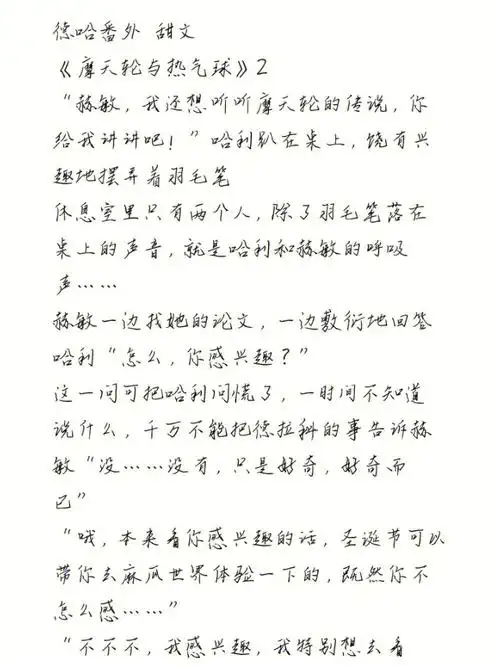 德哈番外 甜文
《摩天轮与热气球》2
“赫敏，我还想听听摩天轮的传说，你
给我讲讲吧！”哈利趴在桌上，饶有兴
趣地摆弄着羽毛笔
休息室里只有两个人，除了羽毛笔落在
桌上的声音，就是哈利和赫敏的呼吸
声……
赫敏一边找她的论文，一边敷衍地回答
哈利“怎么，你感兴趣？”
这一问可把哈利问慌了，一时间不知道
说什么，千万不能把德拉科的事告诉赫
敏“没……没有，只是好奇，好奇而
已”
“哦，本来看你感兴趣的话，圣诞节可以
带你去麻瓜世界体验一下的，既然你不
怎么感……”
“不不不，我感兴趣，我特别想去看